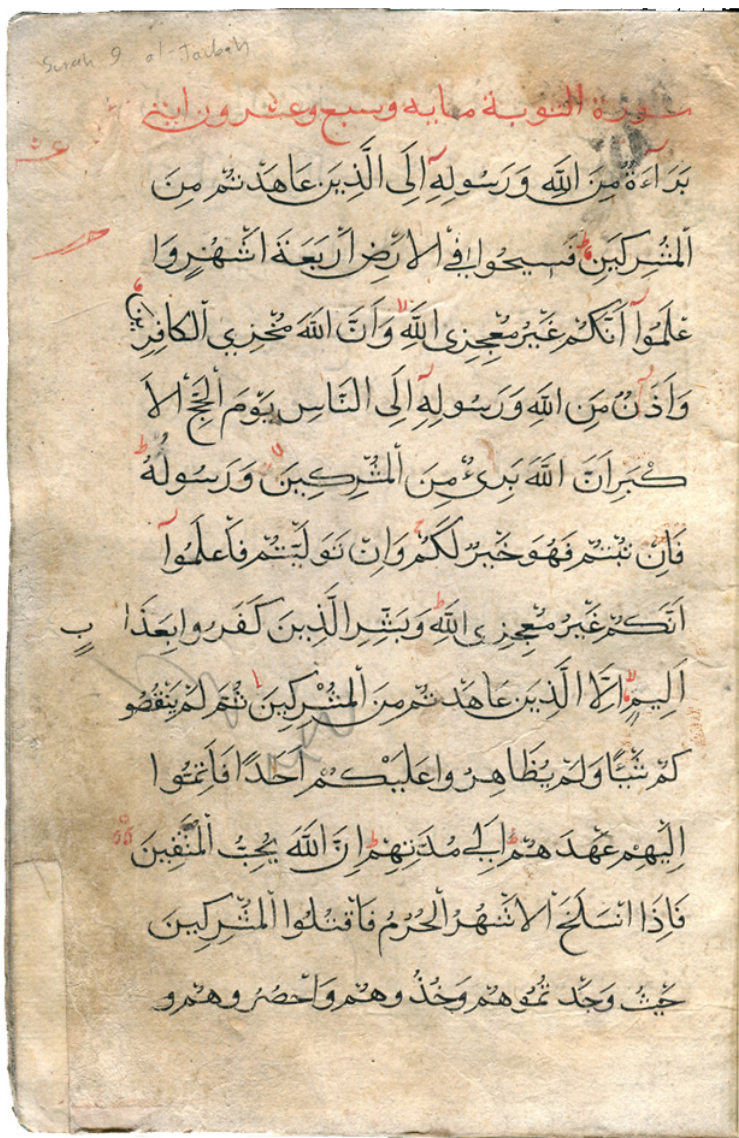 Surah 9 al-Taubah
سورة التوبة مايه وسبع وعشرون اية
بَرَاءَةٌ مِنَ اللَّهِ وَرَسُولِهِ إِلَى الَّذِينَ عَاهَدْتُمْ مِنَ
الْمُشْرِكِينَ فَسِيحُوا فِي الْأَرْضِ أَرْبَعَةَ أَشْهُرٍ وَا
عْلَمُوا أَنَّكُمْ غَيْرُ مُعْجِزِي اللَّهِ وَأَنَّ اللَّهَ مُخْزِي الْكَافِرِينَ
وَأَذَنٌ مِنَ اللَّهِ وَرَسُولِهِ إِلَى النَّاسِ يَوْمَ الْحَجِّ الْأَ
كْبَرِ أَنَّ اللَّهَ بَرِيءٌ مِنَ الْمُشْرِكِينَ وَرَسُولُهُ
فَإِنْ تُبْتُمْ فَهُوَ خَيْرٌ لَكُمْ وَإِنْ تَوَلَّيْتُمْ فَاعْلَمُوا
أَنَّكُمْ غَيْرُ مُعْجِزِي اللَّهِ وَبَشِّرِ الَّذِينَ كَفَرُوا بِعَذَا بٍ
أَلِيمٍ إِلَّا الَّذِينَ عَاهَدْتُمْ مِنَ الْمُشْرِكِينَ ثُمَّ لَمْ يَنْقُصُو
كُمْ شَيْئًا وَلَمْ يُظَاهِرُوا عَلَيْكُمْ أَحَدًا فَأَتِمُّوا
إِلَيْهِمْ عَهْدَهُمْ إِلَى مُدَّتِهِمْ إِنَّ اللَّهَ يُحِبُّ الْمُتَّقِينَ
فَإِذَا انْسَلَخَ الْأَشْهُرُ الْحُرُمُ فَاقْتُلُوا الْمُشْرِكِينَ
حَيْثُ وَجَدْتُمُوهُمْ وَخُذُوهُمْ وَاحْصُرُوهُمْ وَ